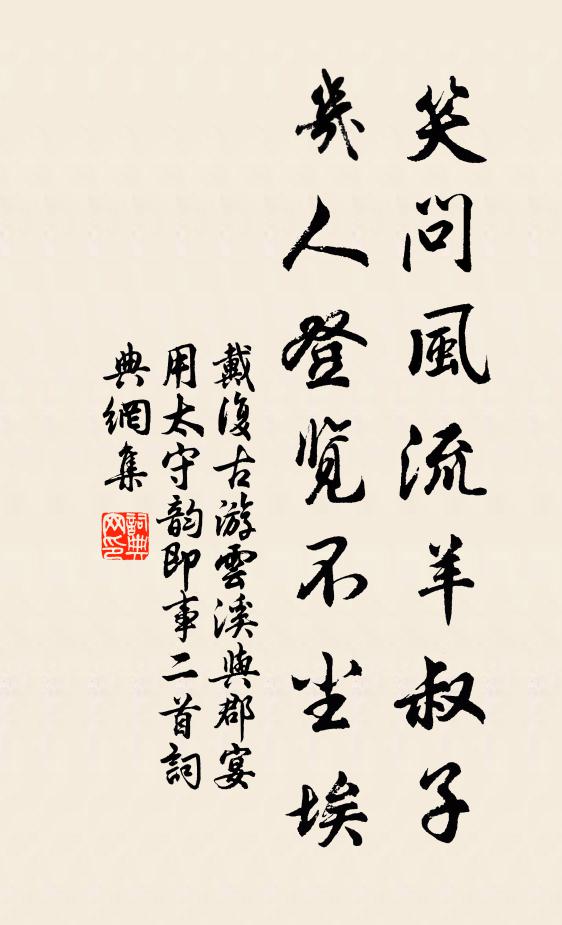 笑問風流羊叔子
幾人登览不尘埃
戴復古游雲溪與郡宴
用太守韵即事二首詞
典網集
詞典網印